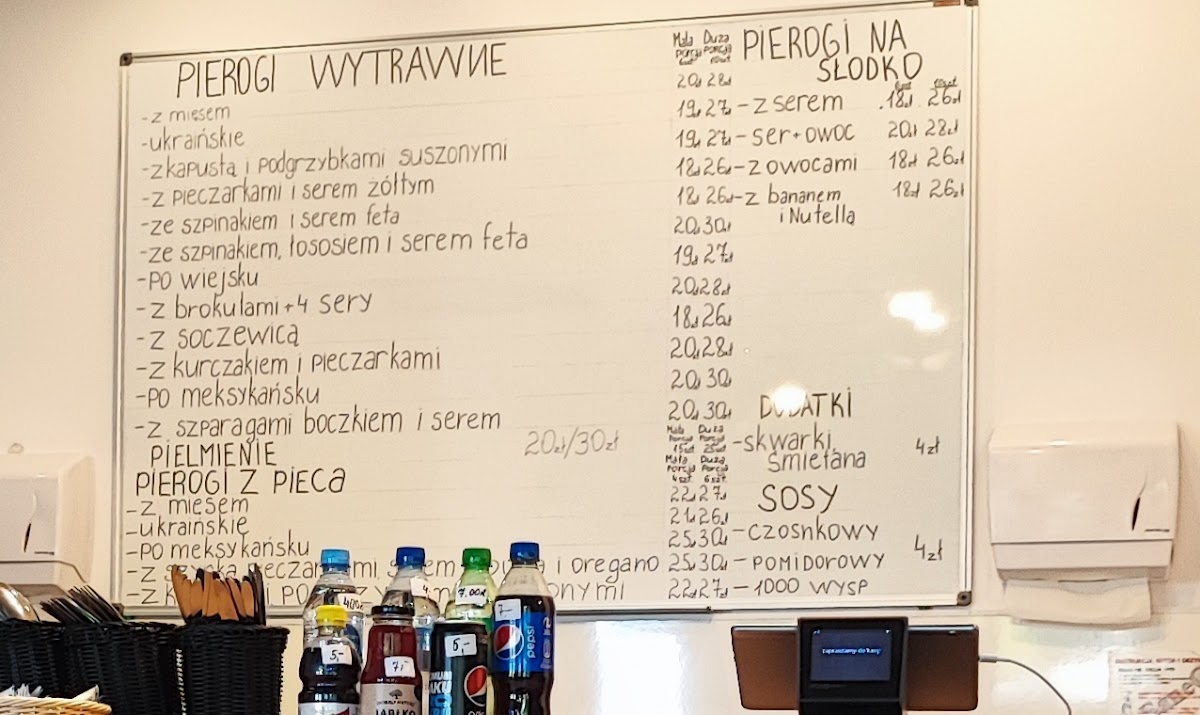 PIEROGI WYTRAWNE
Mała Duża
Porcja Porcja
-z mięsem 20zł 28zł
-ukraińskie 19zł 27zł
-z kapustą i podgrzybkami suszonymi 19zł 27zł
-z pieczarkami i serem żółtym 18zł 26zł
-ze szpinakiem i serem feta 18zł 26zł
-ze szpinakiem, łososiem i serem feta 20zł 30zł
-po wiejsku 19zł 27zł
-z brokułami + 4 sery 20zł 28zł
-z soczewicą 18zł 26zł
-z kurczakiem i pieczarkami 20zł 28zł
-po meksykańsku 20zł 30zł
-z szparagami boczkiem i serem 20zł 30zł
PIELMIENIE 20zł/30zł
Mała Duża
Porcja Porcja
15szt 25szt
PIEROGI Z PIECA
Mała Duża
Porcja Porcja
4szt 6szt
-z mięsem 22zł 27zł
-ukraińskie 21zł 26zł
-po meksykańsku 25zł 30zł
-z i oregano 25zł 30zł
-z 22zł 27zł
PIEROGI NA
SŁODKO
-z serem 18zł 26zł
-ser+owoc 20zł 28zł
-z owocami 18zł 26zł
-z bananem 18zł 26zł
i Nutellą
DODATKI
-skwarki 4zł
śmietana
SOSY
-CZOSNKOWY
-POMIDOROWY 4zł
-1000 WYSP
7.00zł
7,-
5,-
7,-
6,-
pepsi
JABŁKO